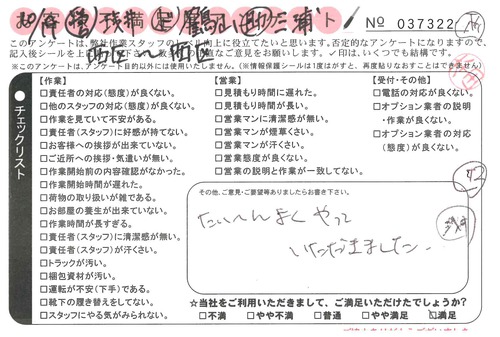 No 037322
このアンケートは、弊社作業スタッフのレベル向上に役立てたいと思います。否定的なアンケートになりますので、
※このアンケートは、アンケート目的以外には使用いたしません。(※情報保護シールは1度はがすと、再度貼りなおすことはできません)
チェックリスト
【作業】
□責任者の対応(態度)が良くない。
□他のスタッフの対応(態度)が良くない。
□作業を見ていて不安がある。
□責任者(スタッフ)に好感が持てない。
□お客様への挨拶が出来ていない。
□ご近所への挨拶・気遣いが無い。
□作業開始前の内容確認がなかった。
□作業開始時間が遅れた。
□荷物の取り扱いが雑である。
□お部屋の養生が出来ていない。
□作業時間が長すぎる。
□責任者(スタッフ)に清潔感が無い。
□責任者(スタッフ)が汗くさい。
□トラックが汚い。
□梱包資材が汚い。
□運転が不安(下手)である。
□靴下の履き替えをしてない。
□スタッフにやる気がみられない。
【営業】
□見積もり時間に遅れた。
□見積もり時間が長い。
□営業マンに清潔感が無い。
□営業マンが煙草くさい。
□営業マンが汗くさい。
□営業態度が良くない。
□営業の説明と作業が一致してない。
【受付・その他】
□電話の対応が良くない。
□オプション業者の説明
・作業が良くない。
□オプション業者の対応
(態度)が良くない。
その他、ご意見・ご要望等ありましたらお書き下さい。
たいへんよくやって
いただきました。
☆当社をご利用いただきまして、ご満足いただけたでしょうか?
□不満 □やや不満 □普通 □やや満足 ☑満足